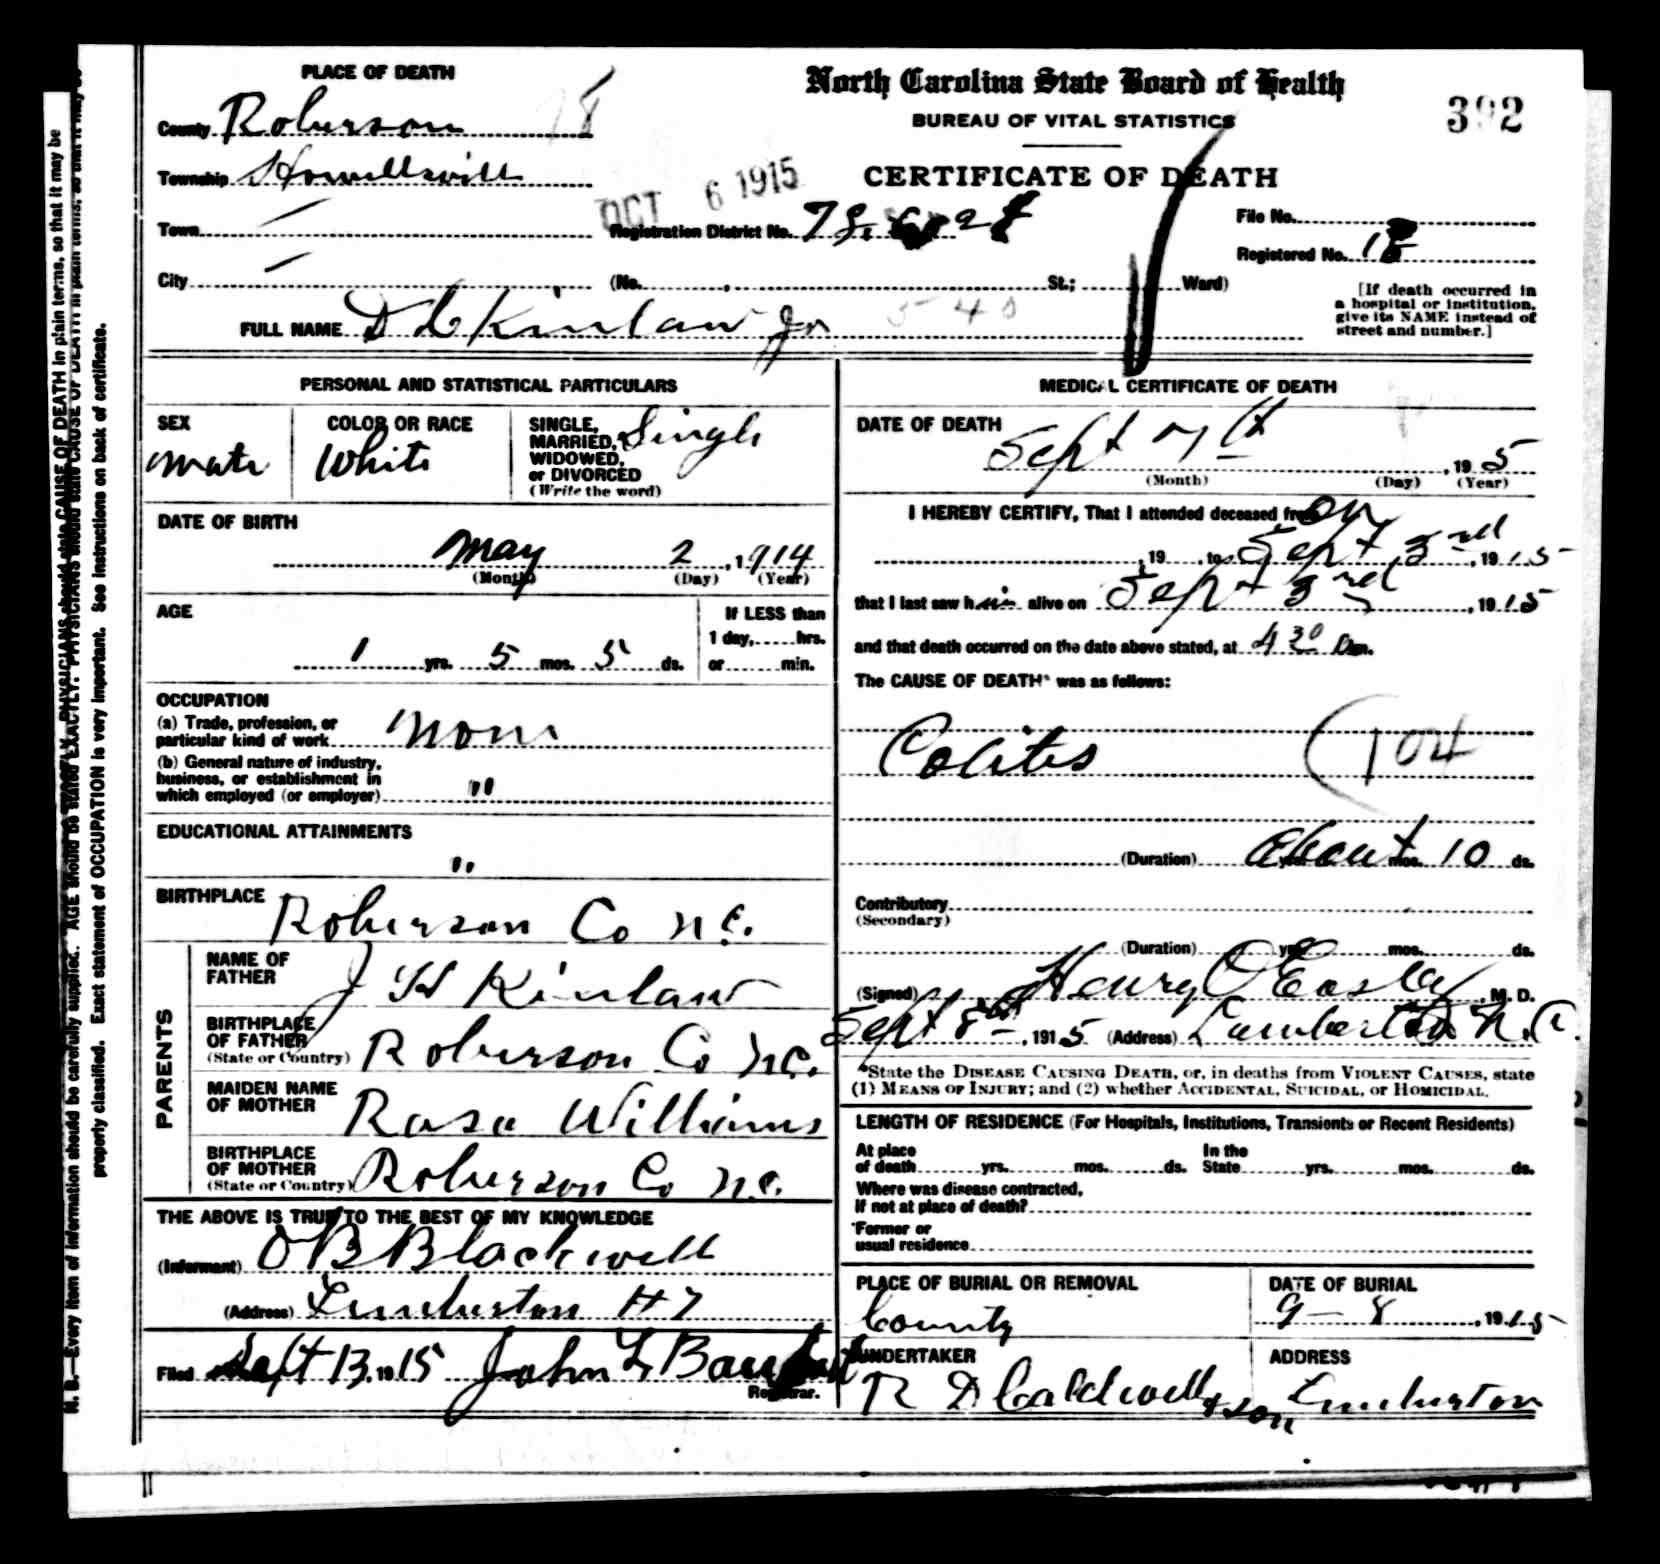 PLACE OF DEATH
North Carolina State Board of Health
County Roberson
BUREAU OF VITAL STATISTICS
392
Township Howellsville
OCT 6 1915
CERTIFICATE OF DEATH
Town
Registration District No.
File No.
Registered No.
City
(No. St.; Ward)
[If death occurred in
a hospital or institution,
give its NAME instead of
street and number.]
FULL NAME D C Kinlaw Jr
540
PERSONAL AND STATISTICAL PARTICULARS
SEX
Male
COLOR OR RACE
White
SINGLE,
MARRIED,
WIDOWED,
or DIVORCED
(Write the word)
Single
DATE OF BIRTH
May 2, 1914
(Month) (Day) (Year)
AGE
1 yrs. 5 mos. 5 ds.
If LESS than
1 day, hrs.
or min.
OCCUPATION
(a) Trade, profession, or
particular kind of work None
(b) General nature of industry,
business, or establishment in
which employed (or employer) "
EDUCATIONAL ATTAINMENTS
"
BIRTHPLACE Roberson Co N.C.
PARENTS
NAME OF
FATHER J H Kinlaw
BIRTHPLACE
OF FATHER
(State or Country) Roberson Co N.C.
MAIDEN NAME
OF MOTHER Rosa Williams
BIRTHPLACE
OF MOTHER
(State or Country) Roberson Co N.C.
THE ABOVE IS TRUE TO THE BEST OF MY KNOWLEDGE
(Informant) O B Blackwell
(Address) Lumberton #7
Filed Sept 13, 1915 John L
Registrar.
MEDICAL CERTIFICATE OF DEATH
DATE OF DEATH
Sept 7th, 1915
(Month) (Day) (Year)
I HEREBY CERTIFY, That I attended deceased from on
, 19 , to Sept 3rd, 1915
that I last saw him alive on Sept 3rd, 1915
and that death occurred on the date above stated, at 4 30 m.
The CAUSE OF DEATH* was as follows:
Colitis
(104
(Duration) about yrs. mos. 10 ds.
Contributory
(Secondary)
(Duration) yrs. mos. ds.
(Signed) Henry O Easley, M. D.
Sept 8th, 1915 (Address) Lumberton N.C.
*State the DISEASE CAUSING DEATH, or, in deaths from VIOLENT CAUSES, state
(1) MEANS OF INJURY; and (2) whether ACCIDENTAL, SUICIDAL, or HOMICIDAL.
LENGTH OF RESIDENCE (For Hospitals, Institutions, Transients or Recent Residents)
At place
of death yrs. mos. ds.
In the
State yrs. mos. ds.
Where was disease contracted,
if not at place of death?
Former or
usual residence
PLACE OF BURIAL OR REMOVAL
County
DATE OF BURIAL
9 - 8, 1915
UNDERTAKER
R D Caldwell & son
ADDRESS
Lumberton
N. B.—Every item of information should be carefully supplied. AGE should be stated EXACTLY. PHYSICIANS should state CAUSE OF DEATH in plain terms, so that it may be
properly classified. Exact statement of OCCUPATION is very important. See instructions on back of certificate.